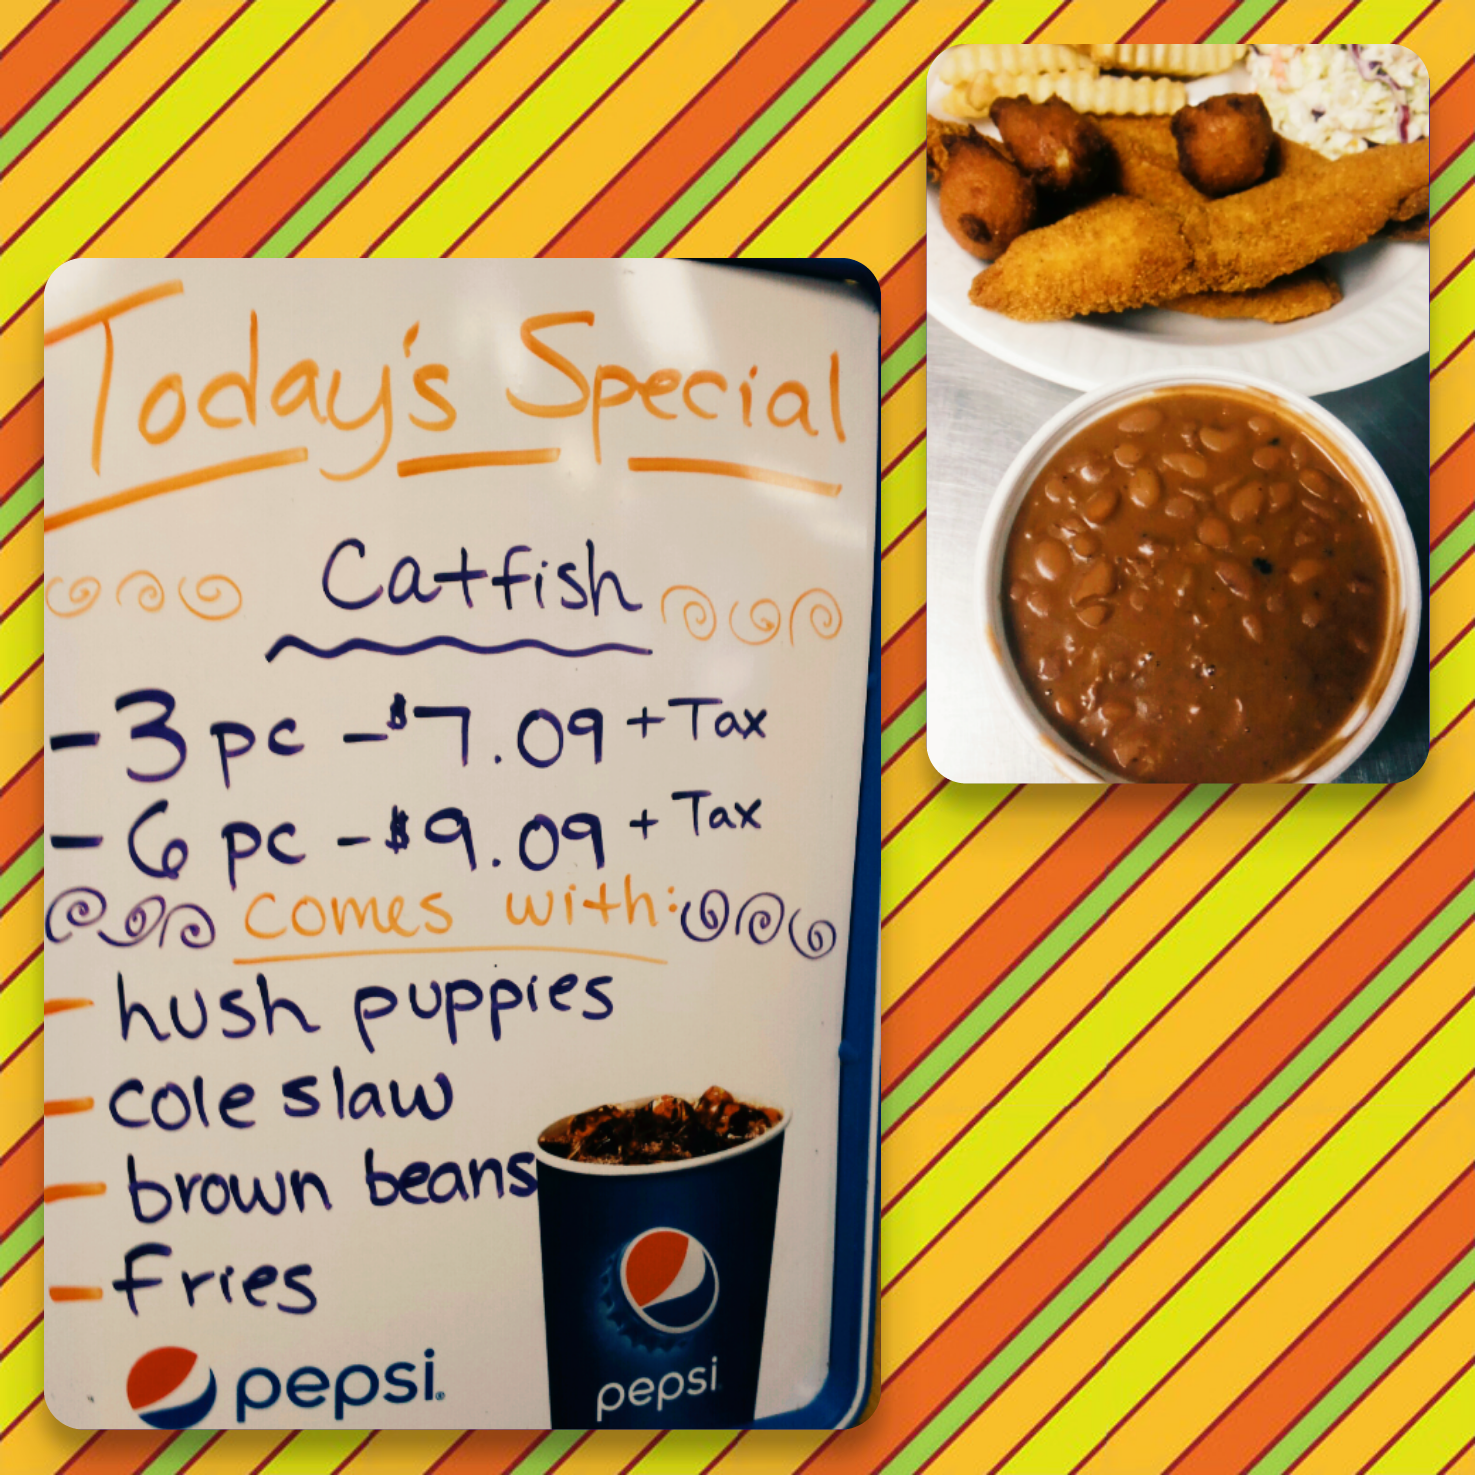 Today's Special
Catfish
- 3 pc - $7.09 + Tax
- 6 pc - $9.09 + Tax
comes with:
- hush puppies
- cole slaw
- brown beans
- fries
pepsi
pepsi